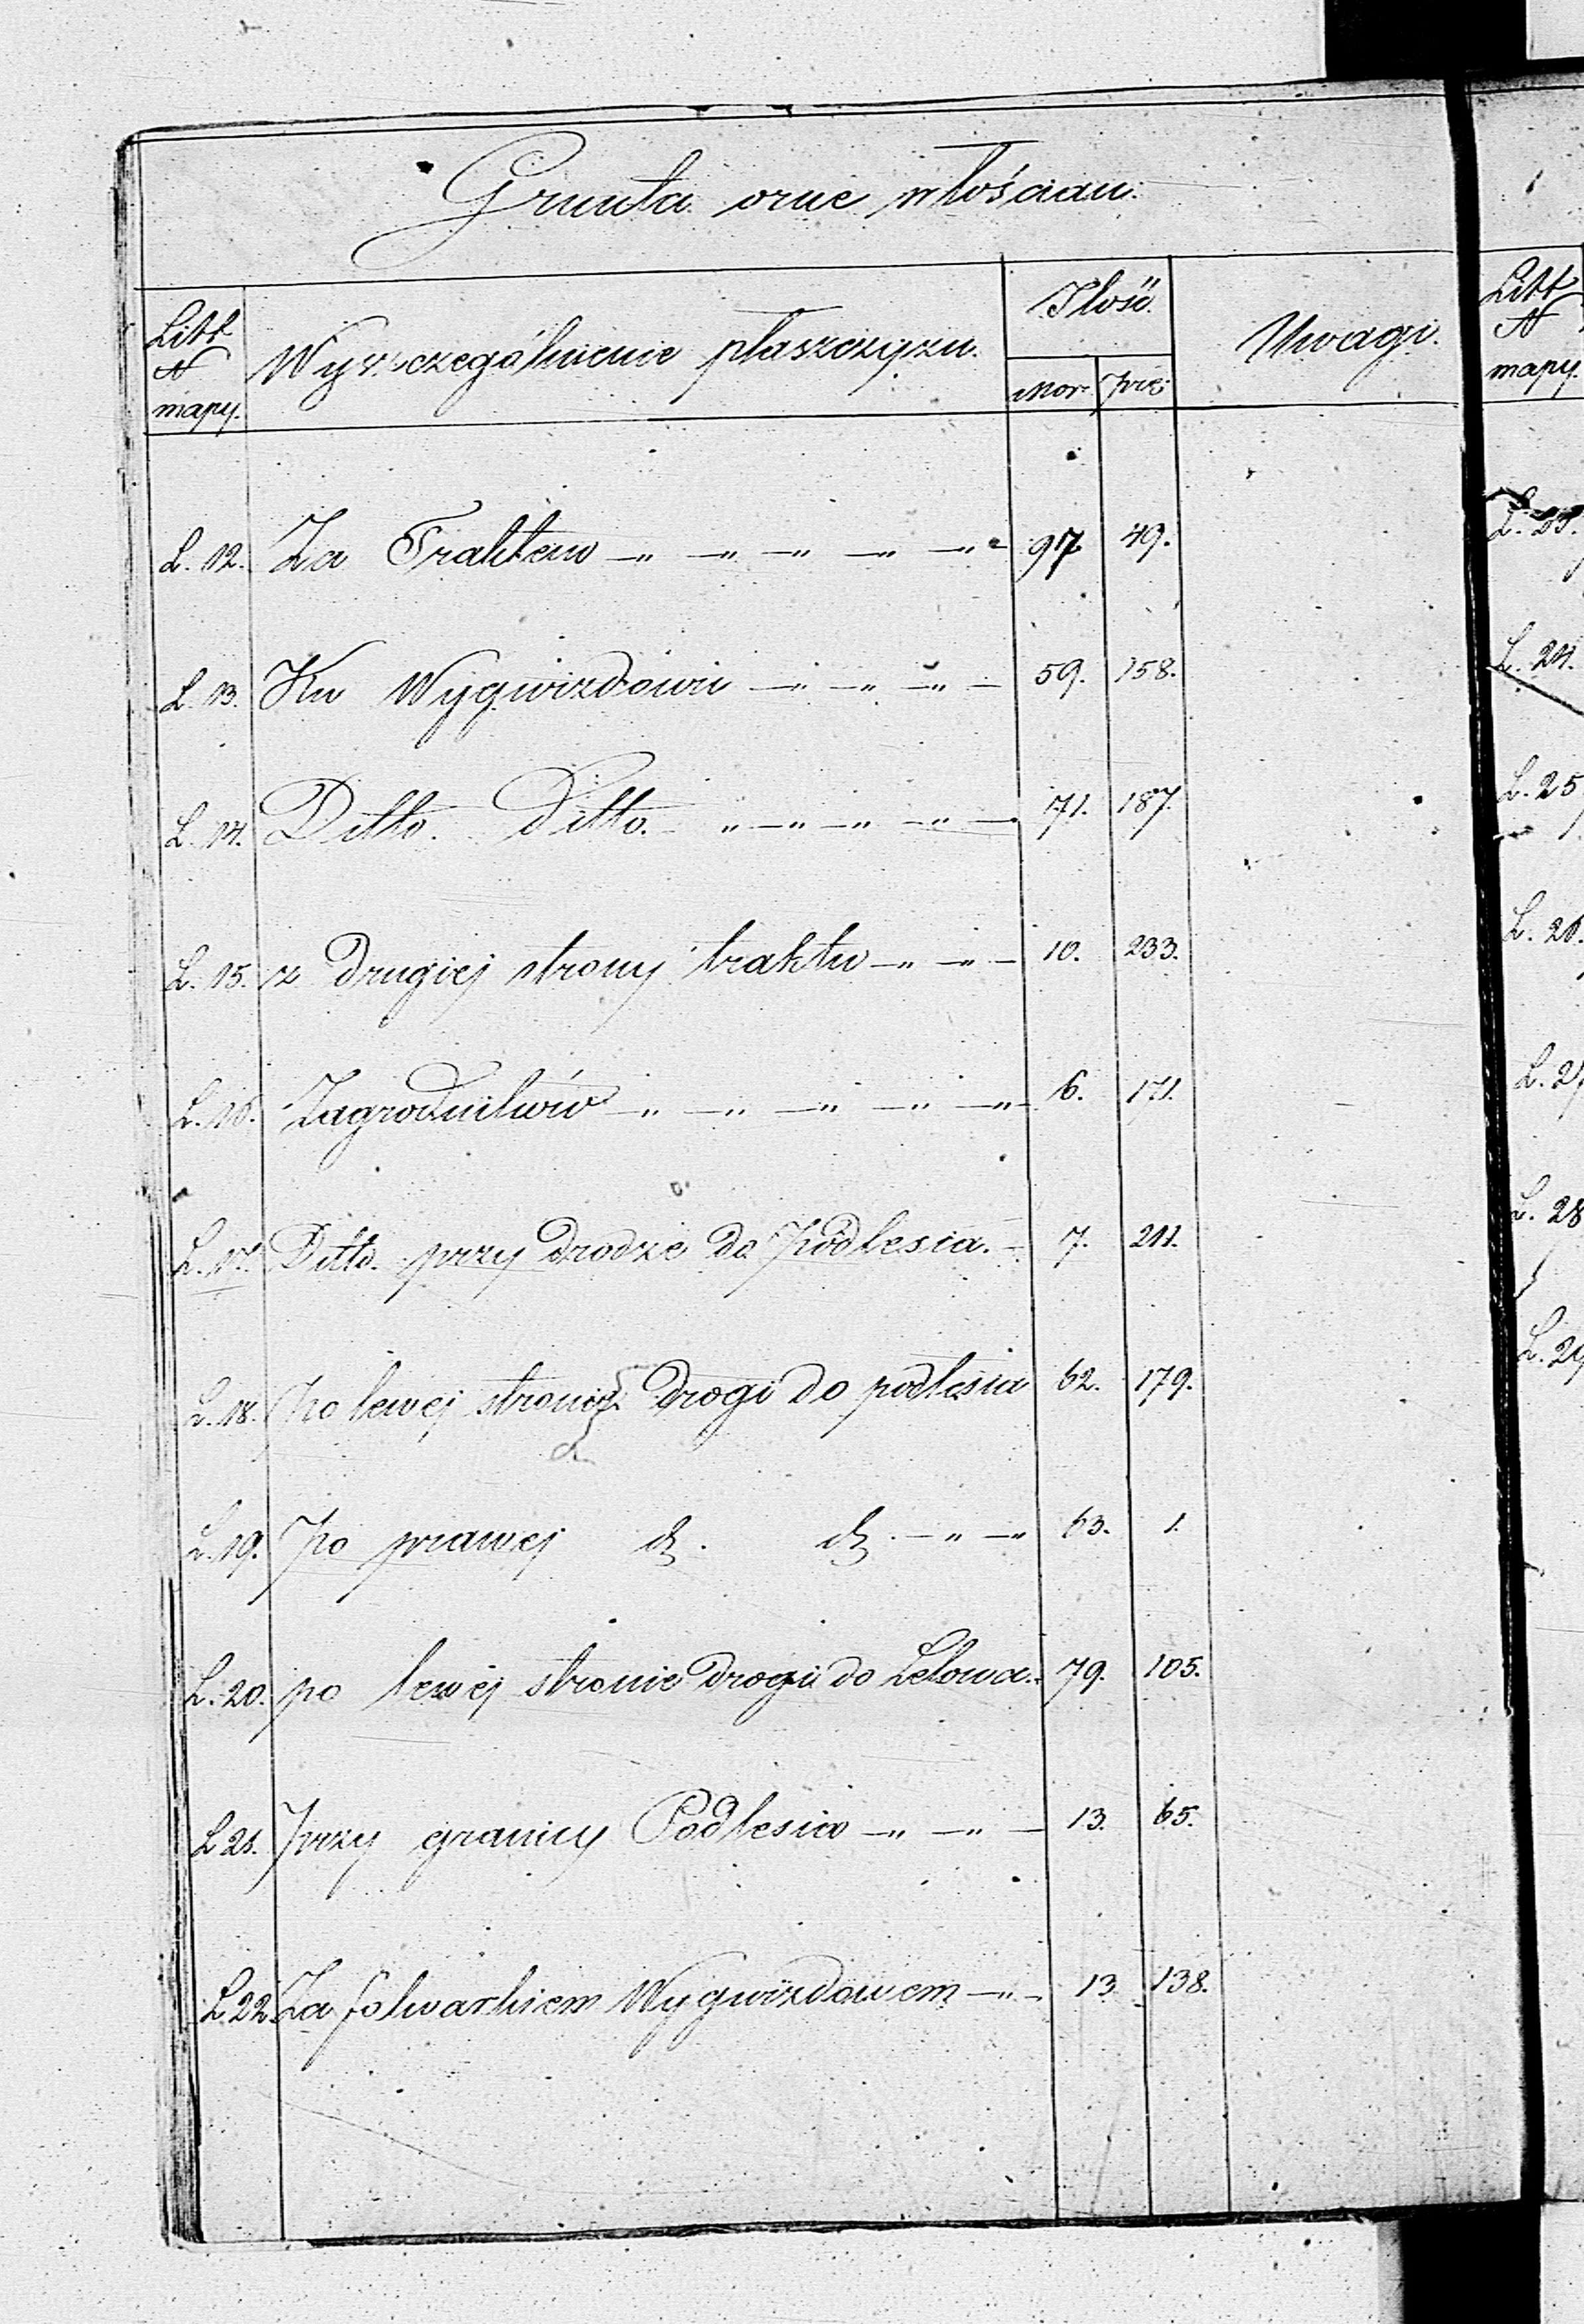 Grunta orne włościan:
Litt N mapy. Wyszczególnienie płaszczyzn. Ilość. Uwagi.
Mor: Prę:
L. 12. Za Traktem —„ —„ —„ —„ —„ 97 49.
L. 13. Ku Wygwizdowu —„ —„ —„ — 59. 158.
L. 14. Ditto. Ditto. „ —„ —„ —„ — 71. 187.
L. 15. z drugiej strony traktu —„ —„ — 10. 233.
L. 16. Zagrodników —„ —„ —„ —„ —„ 6. 171.
L. 17. Ditto. przy drodze do Podlesia. — 7. 211.
L. 18. Po lewej stronie drogi do podlesia 62. 179.
L. 19. Po prawej d°. d°. — „ —„ 63. 1.
L. 20. po lewej stronie drogi do Lelowa. 79. 105.
L 21. Przy granicy Podlesia —„ —„ — 13. 65.
L 22. Za folwarkiem Wygwizdowem —„ — 13 138.
Litt
N
mapy.
L. 23.
L. 24.
L. 25
L. 26.
L. 28